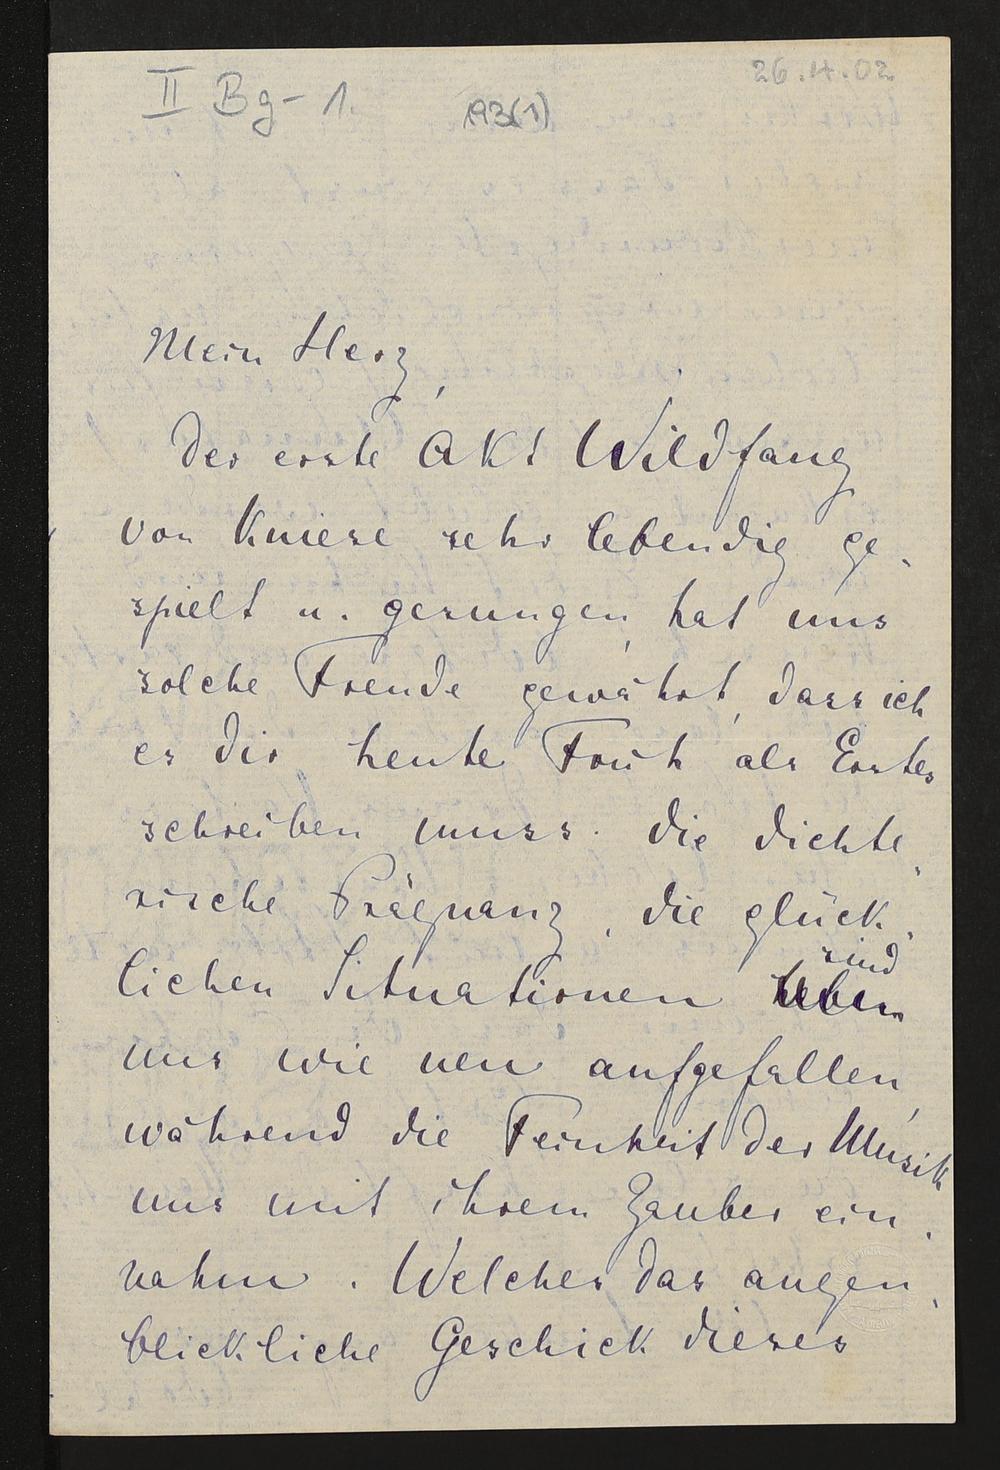 II Bg- 1.
193(1)
26.4.02
Mein Herz,
Der erste Akt Wildfang
von Kniese sehr lebendig ge-
spielt u. gesungen, hat uns
solche Freude gewährt, dass ich
es dir heute Früh als Erstes
schreiben muss. die dichte-
rische Prägnanz, die glück-
lichen Situationen
sind
uns wie neu aufgefallen,
während die Feinheit der Musik
uns mit ihrem Zauber ein-
nahm. Welches das augen-
blickliche Geschick dieses